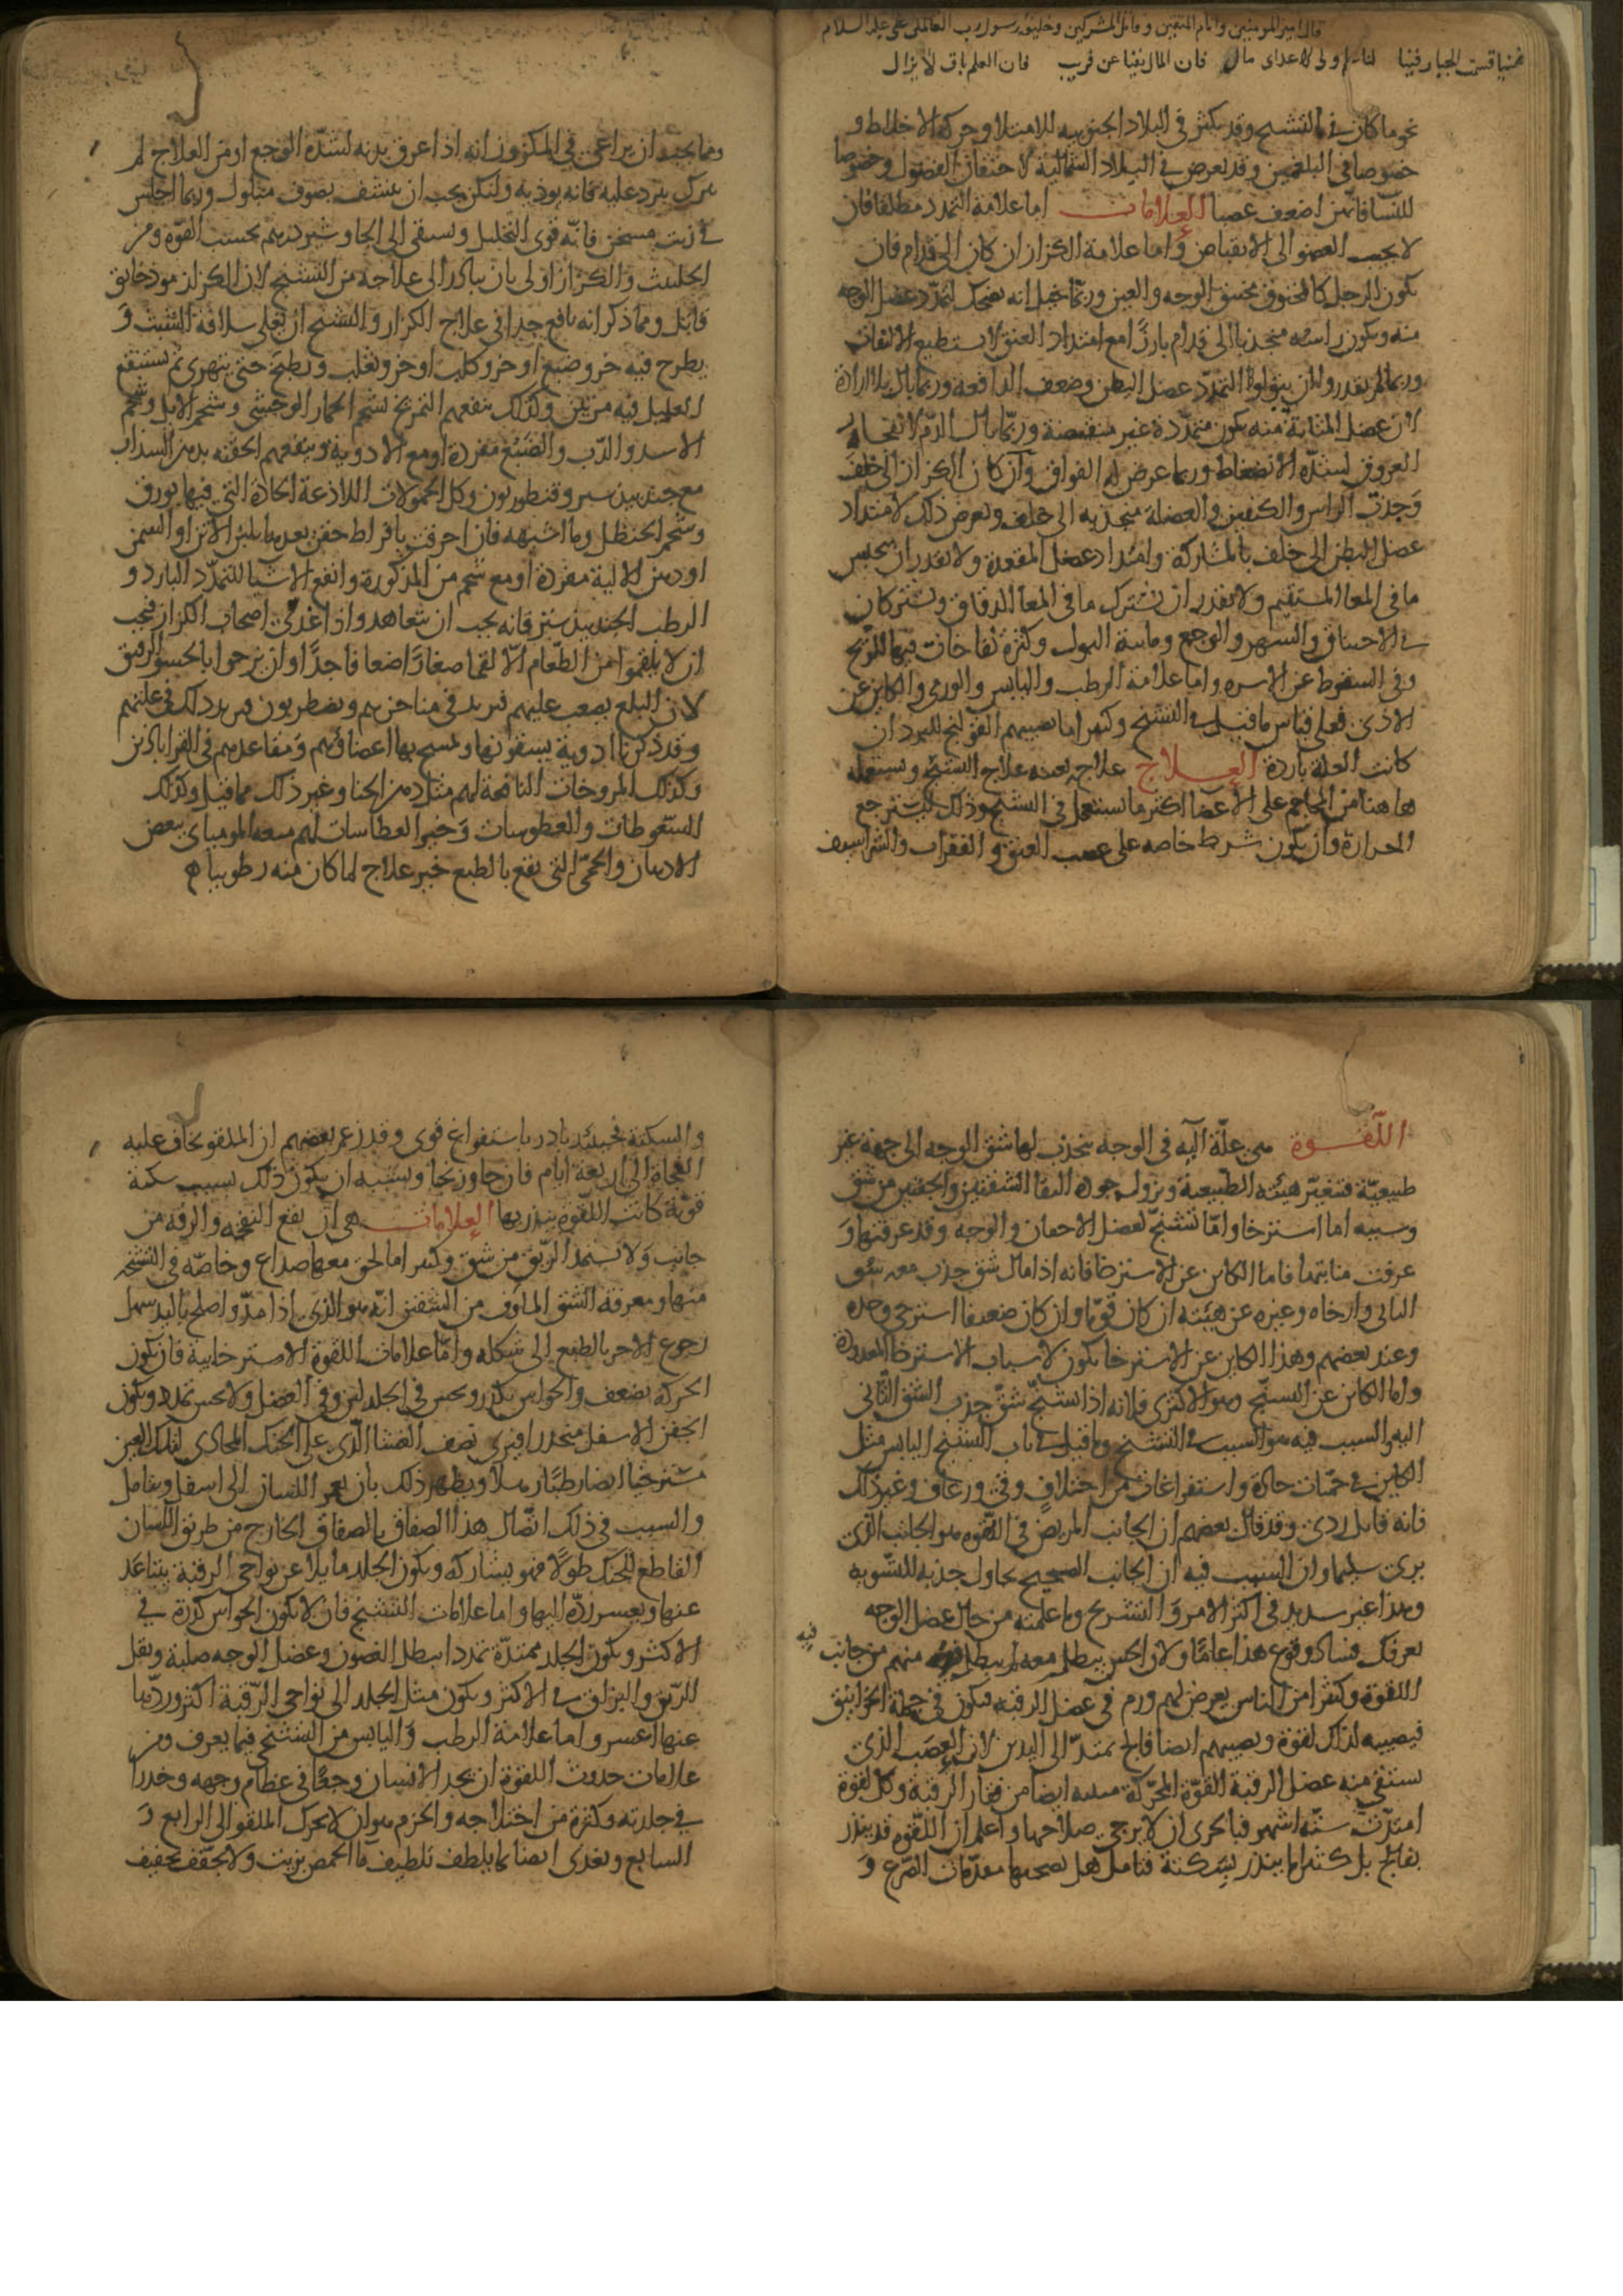 قال امير المومنين وامام المتقين وقاتل المشركين وخليفة رسول رب العالمين على عليه السلام
رضينا قسمة الجبار فينا لنا علم ولى للاعداى مال فان المال يفنى عن قريب فان العلم باق لا يزال
نحو ما كان فى التشنج وقد يكثر فى البلاد الجنوبيه للامتلا وحركة الاخلاط و
خصوصا فى البلغمين وقد يعرض فى البلاد الشمالية لاحتقان الفضول وخصوصا
للنسا فانهن اضعف عصبا العلامات اما علامة التمدد مطلقا فان
لا يجيب العضو الى الانقباض واما علامة الكزاز ان كان الى قدام فان
يكون الرجل كالمخنوق مختنق الوجه والعين وربما خيل انه يضحك لتمدد عضل الوجه
منه ويكون راسه منجذبا الى قدام بارزا مع امتداد العنق لا يستطيع الالتفات
وربما لم يقدر ان يبول لتمدد عضل البطن وضعف الدافعه وربما بال بلا ارادة
لان عضل المثانة منه يكون متمددة غير منقبضة وربما بال الدم لانفجار
العروق لشدة الانضغاط وربما عرض له الفواق وان كان الكزاز الى خلف
وجدت الراس والكتفين والعضلة منجذبه الى خلف ويعرض ذلك لامتداد
عضل البطن الى خلف بالمشاركة وامتداد عضل المقعدة ولا يقدر ان يحبس
ما فى المعا المستقيم ولا يقدر ان يشترك ما فى المعا الدقاق ويشتركان
فى الاختناق والسهر والوجع ومائية البول وكثرة نفاخات فيها للريح
وفى السقوط عن الاسره واما علامة الرطب واليابس والورمى والكاين عن
الاذى فعلى قياس ما قيل فى التشنج وكثيرا ما يصيبهم القولنج للبرد ان
كانت العلة باردة العلاج علاجه بعينه علاج التشنج ويستعمل
هاهنا من المحاجم على الاعضا اكثر مما يستعمل فى التشنج وذلك ليسترجع
الحرارة وان يكون شرط خاصه على عصب العنق والفقرات والشراسيف
ومما يجب ان يراعى فى المكزوز انه اذا عرق بدنه لشدة الوجع او من العلاج لم
يترك يبرد عليه فانه يوذيه ولكن يجب ان ينشف بصوف مبلول وربما اجلس
فى زيت مسخن فانه قوى التحليل ويسقى الى الجاوشير درهم بحسب القوة ومن
الحلتيت والكزاز اولى بان يبادر الى علاجه من التشنج لان الكزاز موذ خانق
قاتل ومما ذكر انه نافع جدا فى علاج الكزاز والتشنج ان يغلى سلاقة الشبث و
يطرح فيه جرو ضبع او جرو كلب او جرو ثعلب ويطبخ حتى يتهرى ثم يستنقع
العليل فيه مرتين وكذلك ينفعهم التمريخ بشحم الحمار الوحشى وشحم الايل وشحم
الاسد والدب والضبع مفردة او مع الادوية وينفعهم الحقنه بدهن السداب
مع جندبيدستر وقنطوريون وكل الحمولات اللاذعة الحادة التى فيها بورق
وشحم الحنظل وما اشبهه فان احرقت بافراط حقن بعدها بلبن الاتن او السمن
او دهن الالية مفردة او مع شحم من المذكورة وانفع الاشيا للتمدد البارد و
الرطب الجندبيدستر فانه يجب ان يتعاهد واذا غذى اصحاب الكزاز فيجب
ان لا يلقموا من الطعام الا لقما صغارا ضعافا جدا او ان يرجوا بالحسو الرقيق
لان البلع يصعب عليهم فيريد فى مناخرهم ويضطربون فيزيد ذلك فى علتهم
وقد ذكرنا ادوية يسقونها ويمسح بها اعضاوهم ومقاعدهم فى القراباذين
وكذلك المروخات النافعة لهم مثل دهن الحنا وغير ذلك مما قيل وكذلك
السعوطات والعطوسات وخير العطاسات لهم سعط المومياى ببعض
الادهان والحمى التى تقع بالطبع خير علاج لما كان منه رطوبيا
اللقوة هى علة آلية فى الوجه ينجذب لها شق الوجه الى جهة غير
طبيعية فتغير هيئته الطبيعية وتزول جودة التقا الشفتين والجفنين من شق
وسببه اما استرخا واما تشنج لعضل الاجفان والوجه وقد عرفتها و
عرفت منابتها فاما الكاين عن الاسترخا فانه اذا مال شق جذب معه شق
الثانى وارخاه وغيره عن هيئته ان كان قويا وان كان ضعيفا استرخى وحده
وعند بعضهم وهذا الكاين عن الاسترخا يكون لاسباب الاسترخا المعدودة
واما الكاين عن التشنج وهو الاكثرى فلانه اذا تشنج شق جذب الشق الثانى
اليه والسبب فيه هو السبب فى التشنج وما قيل فى باب التشنج اليابس مثل
الكاين فى حميات حادة واستفراغات من اختلاف وقى ورعاف وغير ذلك
فانه قاتل ردى وقد قال بعضهم ان الجانب المريض فى اللقوة هو الجانب الذى
يرى سليما وان السبب فيه ان الجانب الصحيح يحاول جذبه للتسوية
وهذا غير سديد فى اكثر الامر والتشريح وما علمته من حال عضل الوجه
يعرفك فساد وقوع هذا عاما ولان الحس يبطل معه لم يبطل منهم من جانب فيه
اللقوة وكثير من الناس يعرض لهم ورم فى عضل الرقبة فيكون فى جملة الخوانيق
فيصيبه لذلك لقوة ويصيبهم ايضا فالج يمتد الى اليدين لان العصب الذى
يستقى منه عضل الرقبة القوة المحركة منبته ايضا من فقار الرقبة وكل لقوة
امتدت ستة اشهر فبالحرى ان لا يرجى صلاحها واعلم ان اللقوة قد ينذر
بفالج بل كثيرا ما ينذر بسكتة فتامل هل يصحبها مقدمات الصرع و
والسكتة فحينئذ بادر باستفراغ قوى وقد زعم بعضهم ان الملقو يخاف عليه
الفجاة الى اربعة ايام فان جاوز نجا ويشبه ان يكون ذلك بسبب سكتة
قوية كانت اللقوة ينذر بها العلامات هى ان يقع النفخه والبزقه من
جانب ولا يستمد الريق من شق وكثيرا ما لحق معها صداع وخاصة فى التشنجيه
منها ومعرفة الشق الماوف من الشقين انه هو الذى اذا مد واصلح باليد سهل
رجوع الاخر بالطبع الى شكله واما علامات اللقوة الاسترخاييه فان يكون
الحركة يضعف والحواس يكدر ويحس فى الجلد لين وفى العضل ولا يحس تمدد ويكون
الجفن الاسفل منحدرا فيرى نصف الغشا الذى على الحنك المحاذى لتلك العين
مسترخيا ايضا رطبا رهلا ويظهر ذلك بان يغمز اللسان الى اسفل ويتامل
والسبب فى ذلك اتصال هذا الصفاق بالصفاق الخارج من طريق اللسان
القاطع للحنك طولا فهو يشاركه ويكون الجلد مايلا عن نواحى الرقبة يتباعد
عنها ويعسر رده اليها واما علامات التشنج فان لا يكون الحواس كدرة فى
الاكثر ويكون الجلد ممتدة تمددا يبطل الغضون وعضل الوجه صلبة ويقل
الريق والبزاق فى الاكثر ويكون ميل الجلد الى نواحى الرقبة اكثر وردها
عنها اعسر واما علامة الرطب واليابس من التشنج فيما يعرف ومن
علامات حدوث اللقوة ان يجد الانسان وجعا فى عظام وجهه وخدرا
فى جلدته وكثرة من اختلاجه والحزم هو ان لا يحرك الملقو الى الرابع و
السابع ويغذى ايضا بما يلطف تلطيف ما الحمص بزيت ولا يجفف تجفيف